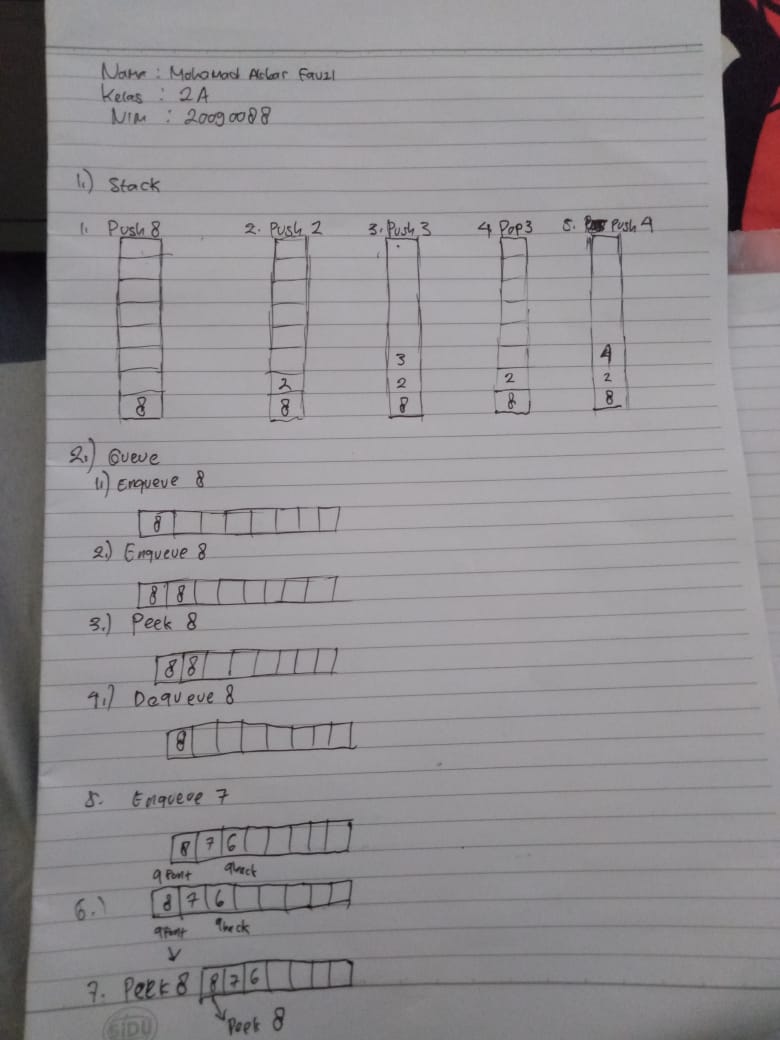 Nama : Mohamad Akbar Fauzi
Kelas : 2A
NIM : 20090088
1.) Stack
1. Push 8 2. Push 2 3. Push 3 4 Pop 3 5. Push 4
3 4
2 2 2 2
8 8 8 8 8
2.) Queue
1.) Enqueue 8
8
2.) Enqueue 8
8 8
3.) Peek 8
8 8
4.) Dequeue 8
8
5. Enqueue 7
8 7 6
qFont qback
6.) 8 7 6
qFont qback
7. Peek 8 8 7 6
Peek 8
SIDU